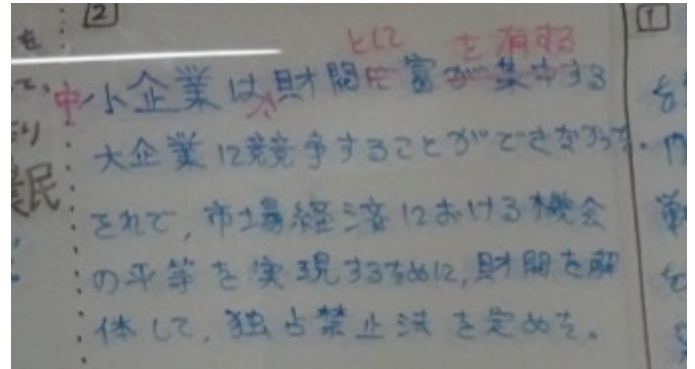 2
1
として を有する
中小企業は財閥に富が集中する
大企業に競争することができなかった。
それで,市場経済における機会
の平等を実現するために,財閥を解
体して,独占禁止法を定めた。
を
民